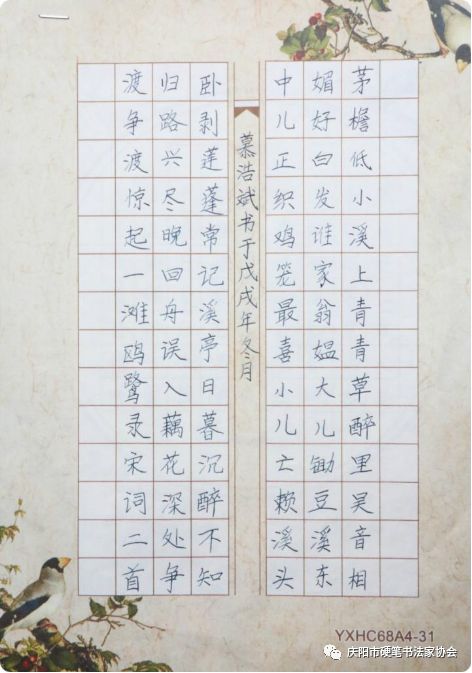 茅檐低小溪上青青草醉里吴音相
媚好白发谁家翁媪大儿锄豆溪东
中儿正织鸡笼最喜小儿亡赖溪头
卧剥莲蓬常记溪亭日暮沉醉不知
归路兴尽晚回舟误入藕花深处争
渡争渡惊起一滩鸥鹭录宋词二首
慕浩斌书于戊戌年冬月
YXHC68A4-31
庆阳市硬笔书法家协会